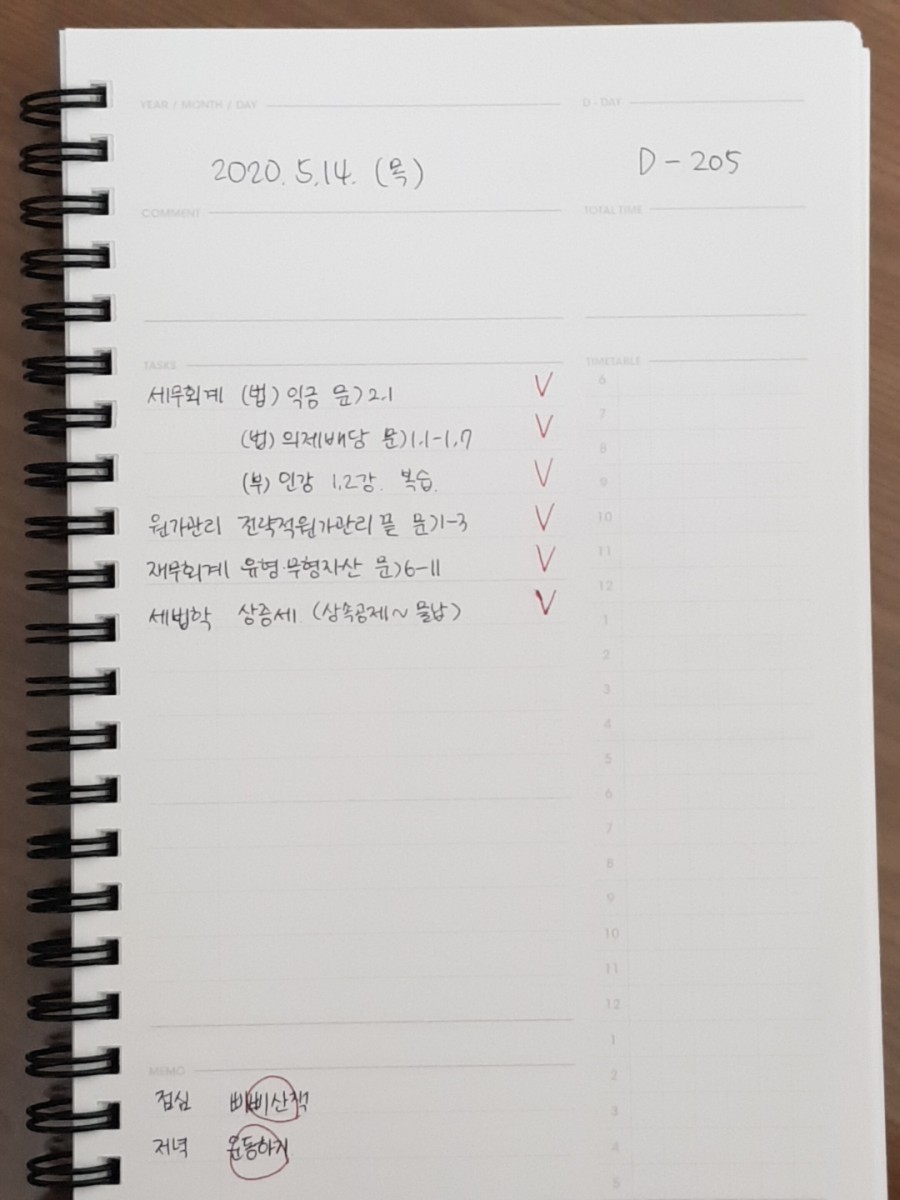 YEAR / MONTH / DAY D - DAY
2020. 5. 14. (목) D - 205
COMMENT TOTAL TIME
TASKS TIMETABLE
세무회계 (법) 익금 문) 2.1 V
(법) 의제배당 문) 1.1-1.7 V
(부) 인강 1,2강. 복습. V
원가관리 전략적원가관리 끝 문) 1-3 V
재무회계 유형·무형자산 문) 6-11 V
세법학 상증세 (상속공제~물납) V
6
7
8
9
10
11
12
1
2
3
4
5
6
7
8
9
10
11
12
1
2
3
4
5
MEMO
점심 삐삐산책
저녁 운동하기